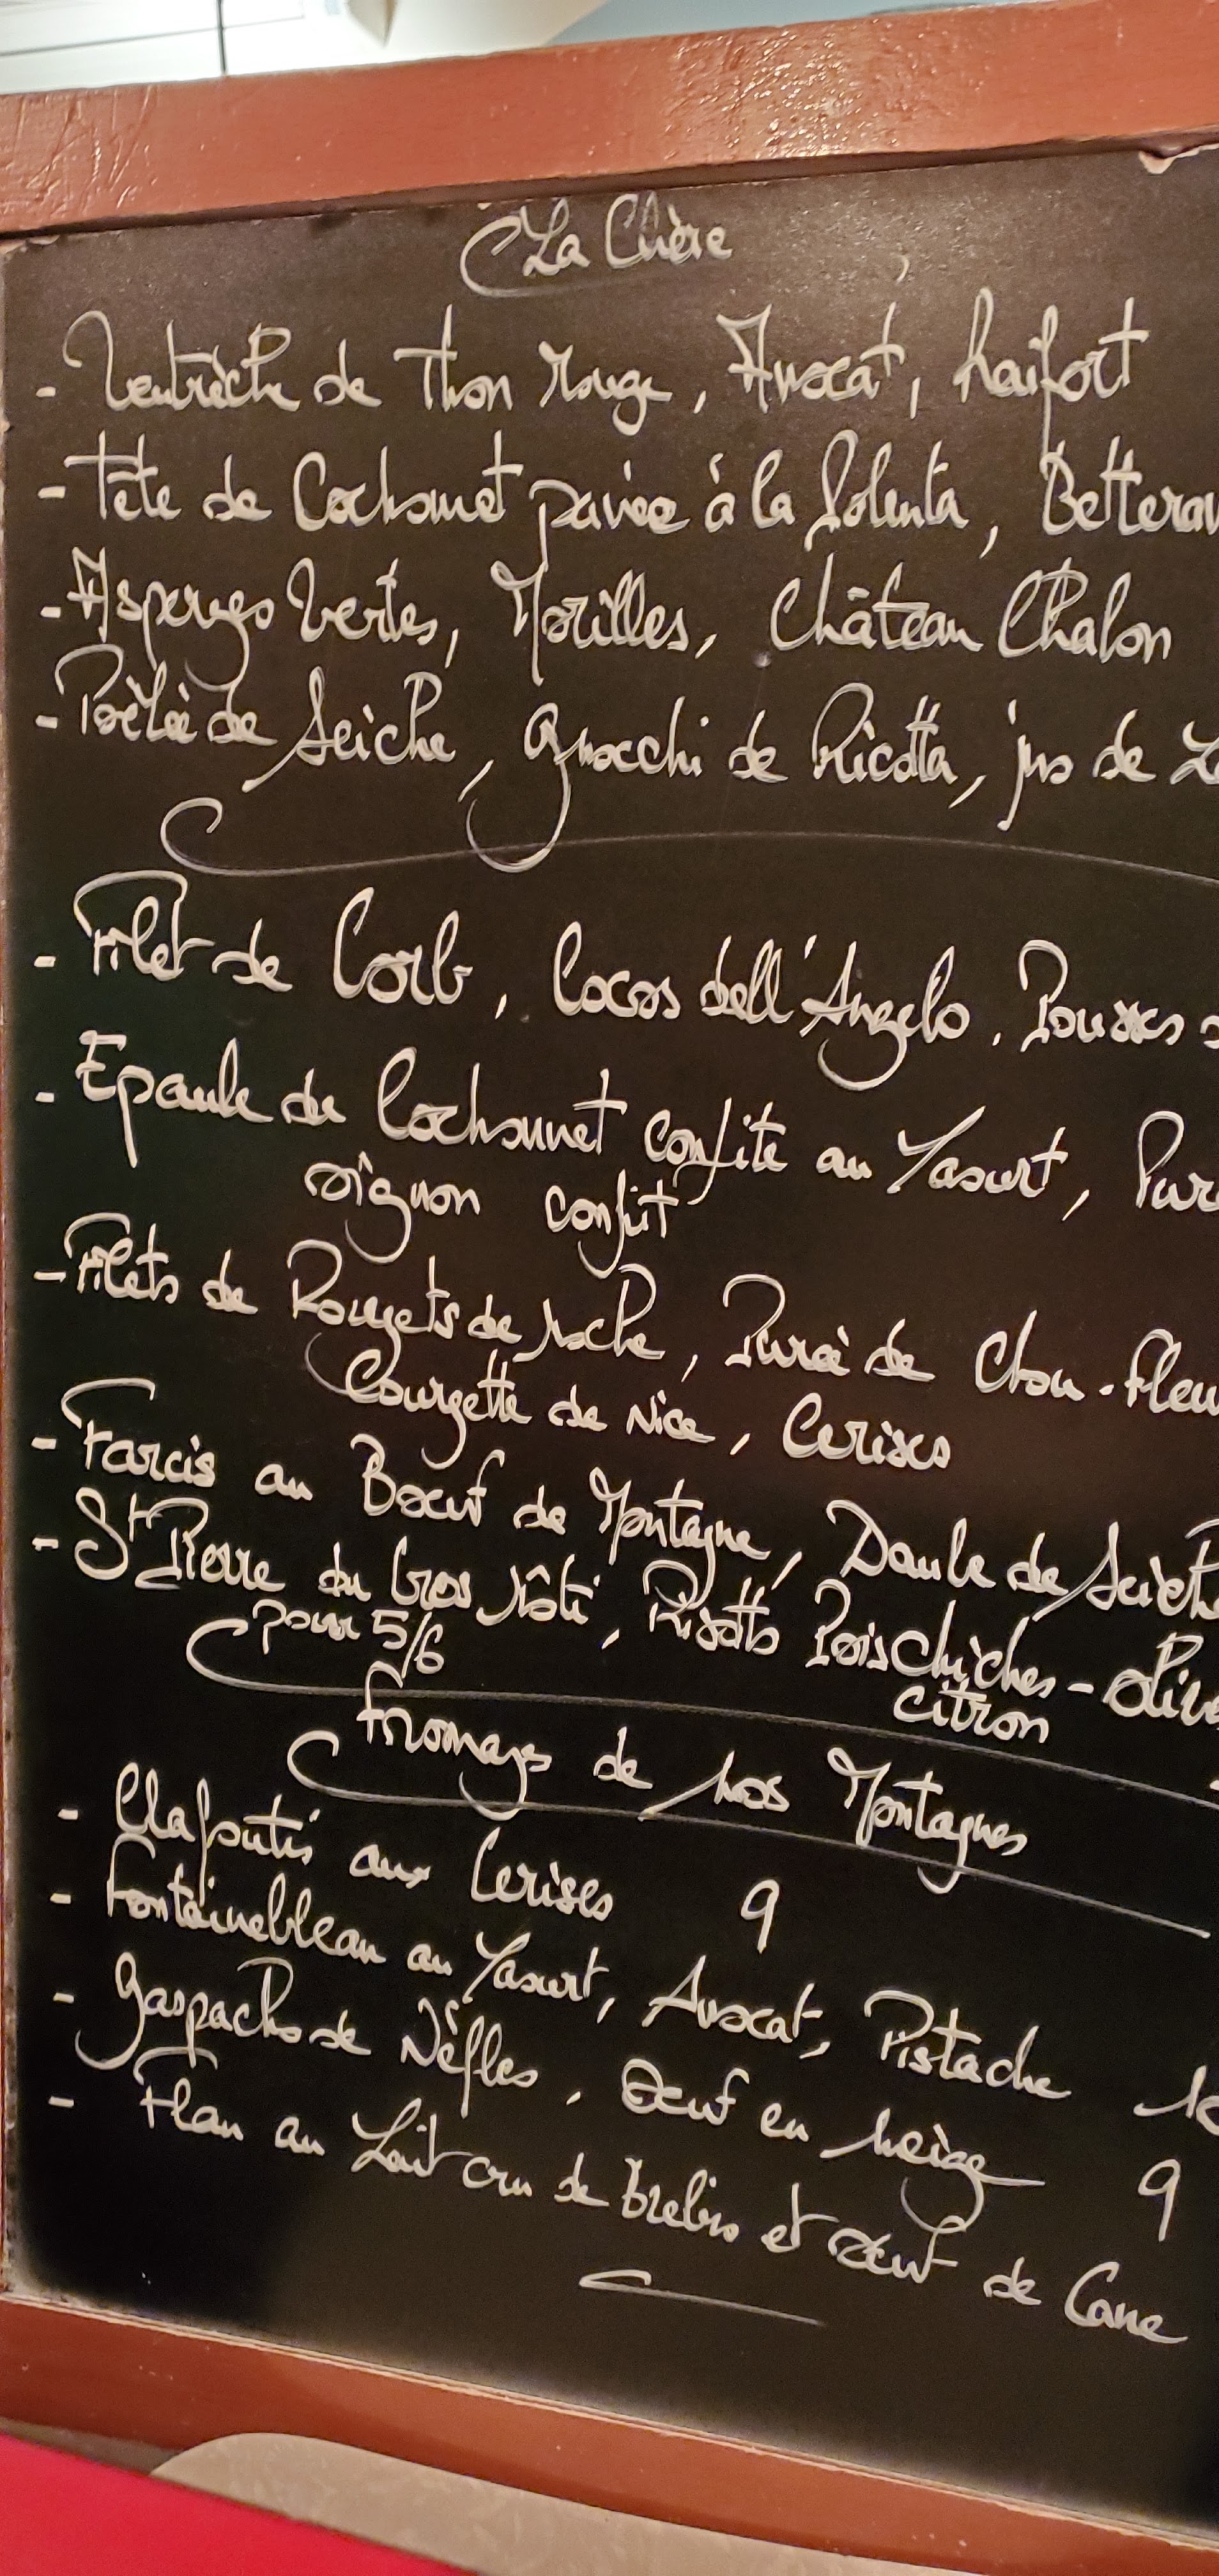 La Chère
- Ventrèche de Thon rouge, Avocat, Raifort
- Tête de Cochonnet panée à la Polenta, Betterav
- Asperges Vertes, Morilles, Château Chalon
- Poêlée de Seiche, gnocchi de Ricotta, jus de
- Filet de Corb, Cocos dell'Angelo, Pousses
- Epaule de Cochonnet confite au Yaourt, Pur
oignon confit
- Filets de Rougets de roche, Purée de Chou-fleu
Courgette de Nice, Cerises
- Farcis au Bœuf de Montagne, Daube de Seich
- St Pierre du Gros rôti, Risotto Pois Chiches - olive
pour 5/6
citron
Fromages de nos Montagnes
- Clafoutis aux Cerises 9
- Fontainebleau au Yaourt, Avocat, Pistache
- Gaspacho de Nèfles, Œuf en neige 9
- Flan au Lait cru de Brebis et œuf de Cane